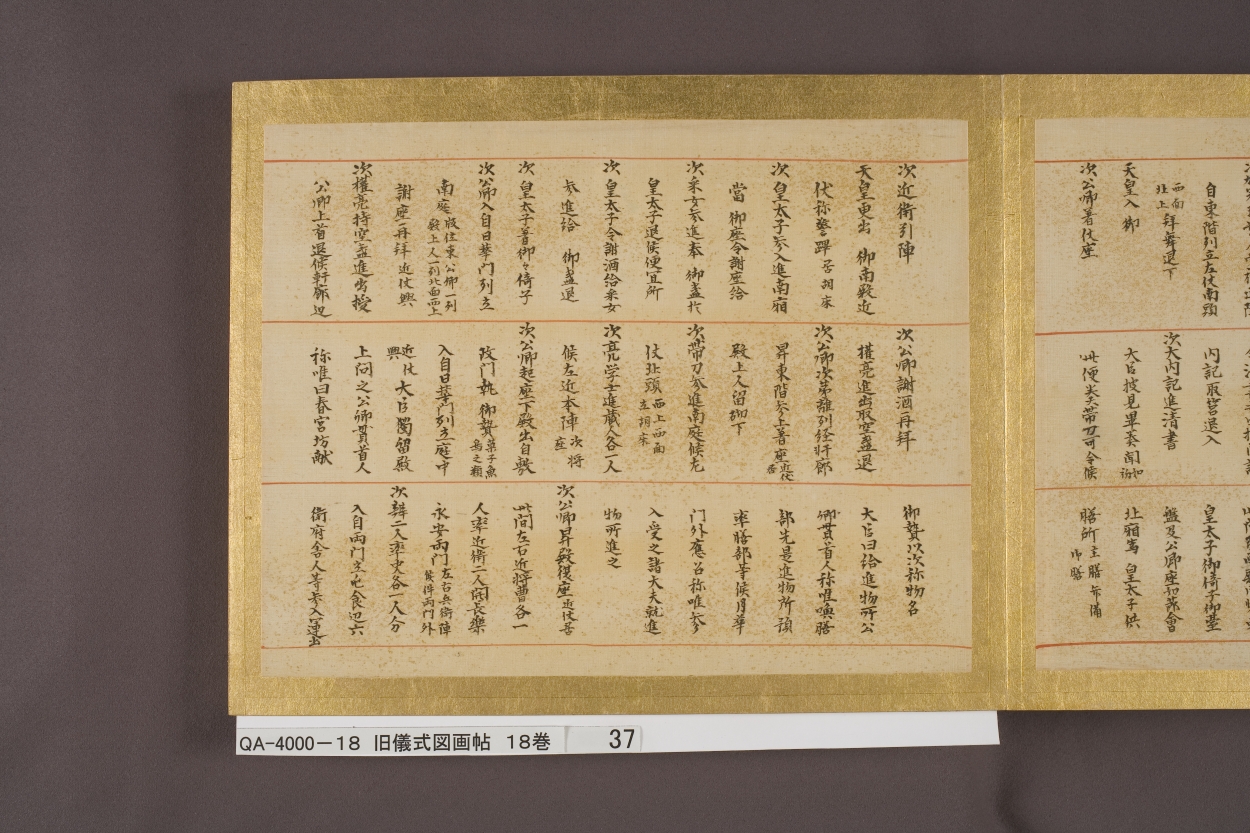 自東階列立左仗南頭
西面
北上 拜舞退下
天皇入御
次公卿着仗座
內記取筥退入
次大内記進清書
大臣披見畢奏聞
此便奏帶刀可令候
皇太子御倚子御臺
盤及公卿座
北廂為皇太子供
膳所主膳弁備御膳
次近衛引陣
天皇更出御南殿近
伏称警蹕居胡床
次皇太子参入進南廂
當御座令謝座給
次采女参進奉御盞於
皇太子退候便宜所
次皇太子令謝酒給采女
参進給御盞退
次皇太子着御々倚子
次公卿入自日華門列立
南庭版位東公卿一列
殿上人一列北面西上
謝座再拜近仗興
次權亮持空盞進出授
公卿上首退候軒廊辺
次公卿謝酒再拜
權亮進出取空盞退
次公卿次第離列経軒廊
昇東階参上着座近仗居
殿上人留砌下
次帶刀参進南庭候左
仗北頭西上西面
立胡床
次亮学士進蔵人各一人
候左近本陣次将座
次公卿起座下殿出自敷
政門執御贄菓子魚
鳥之類
入自日華門列立庭中
近仗興 大臣獨留殿
上問之公卿貫首人
称唯曰春宮坊献
御贄以次称物名
大臣曰給進物所公
卿貫首人称唯喚膳
部先是進物所預
率膳部等候月華
門外應召称唯参
入受之諸大夫就進
物所進之
次公卿昇殿復座近仗居
此間左右近将曹各一
人率近衛二人開長樂
永安両門左右兵衛陣
候件両門外
次辨二人率史各一人分
入自両門立屯食辺六
衛府舎人等参入運出
QA-4000-18 旧儀式図画帖 18巻 37